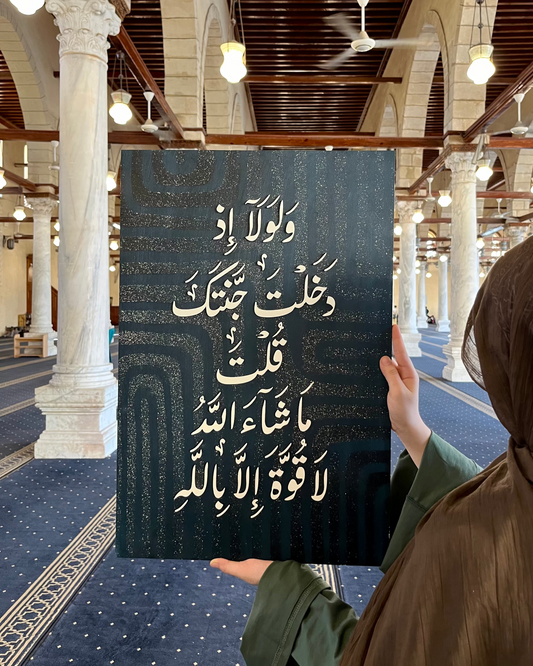 وَلَوْلَآ إِذْ
دَخَلْتَ جَنَّتَكَ
قُلْتَ
مَا شَآءَ اللَّهُ
لَا قُوَّةَ إِلَّا بِاللَّهِ